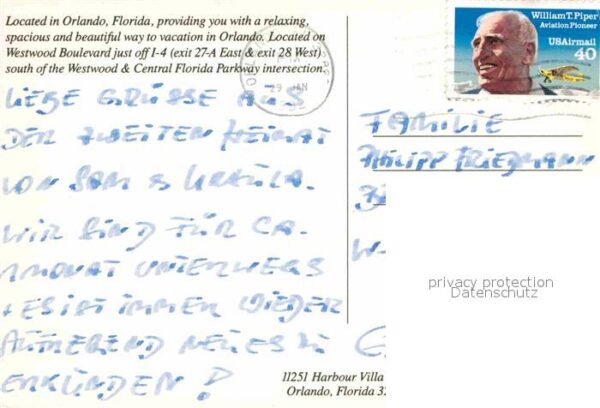 Located in Orlando, Florida, providing you with a relaxing,
spacious and beautiful way to vacation in Orlando. Located on
Westwood Boulevard just off I-4 (exit 27-A East & exit 28 West)
south of the Westwood & Central Florida Parkway intersection.
William T. Piper
Aviation Pioneer
USAirmail
40
29 JAN
LIEBE GRÜSSE AUS
DER ZWEITEN HEIMAT
VON SAM & URSULA.
WIR SIND FÜR CA.
1 MONAT UNTERWEGS
+ ES IST IMMER WIEDER
AUFREGEND NEUES ZU
ERKUNDEN!
FAMILIE
PHILIPP FRIEDMANN
privacy protection
Datenschutz
11251 Harbour Villa
Orlando, Florida 3